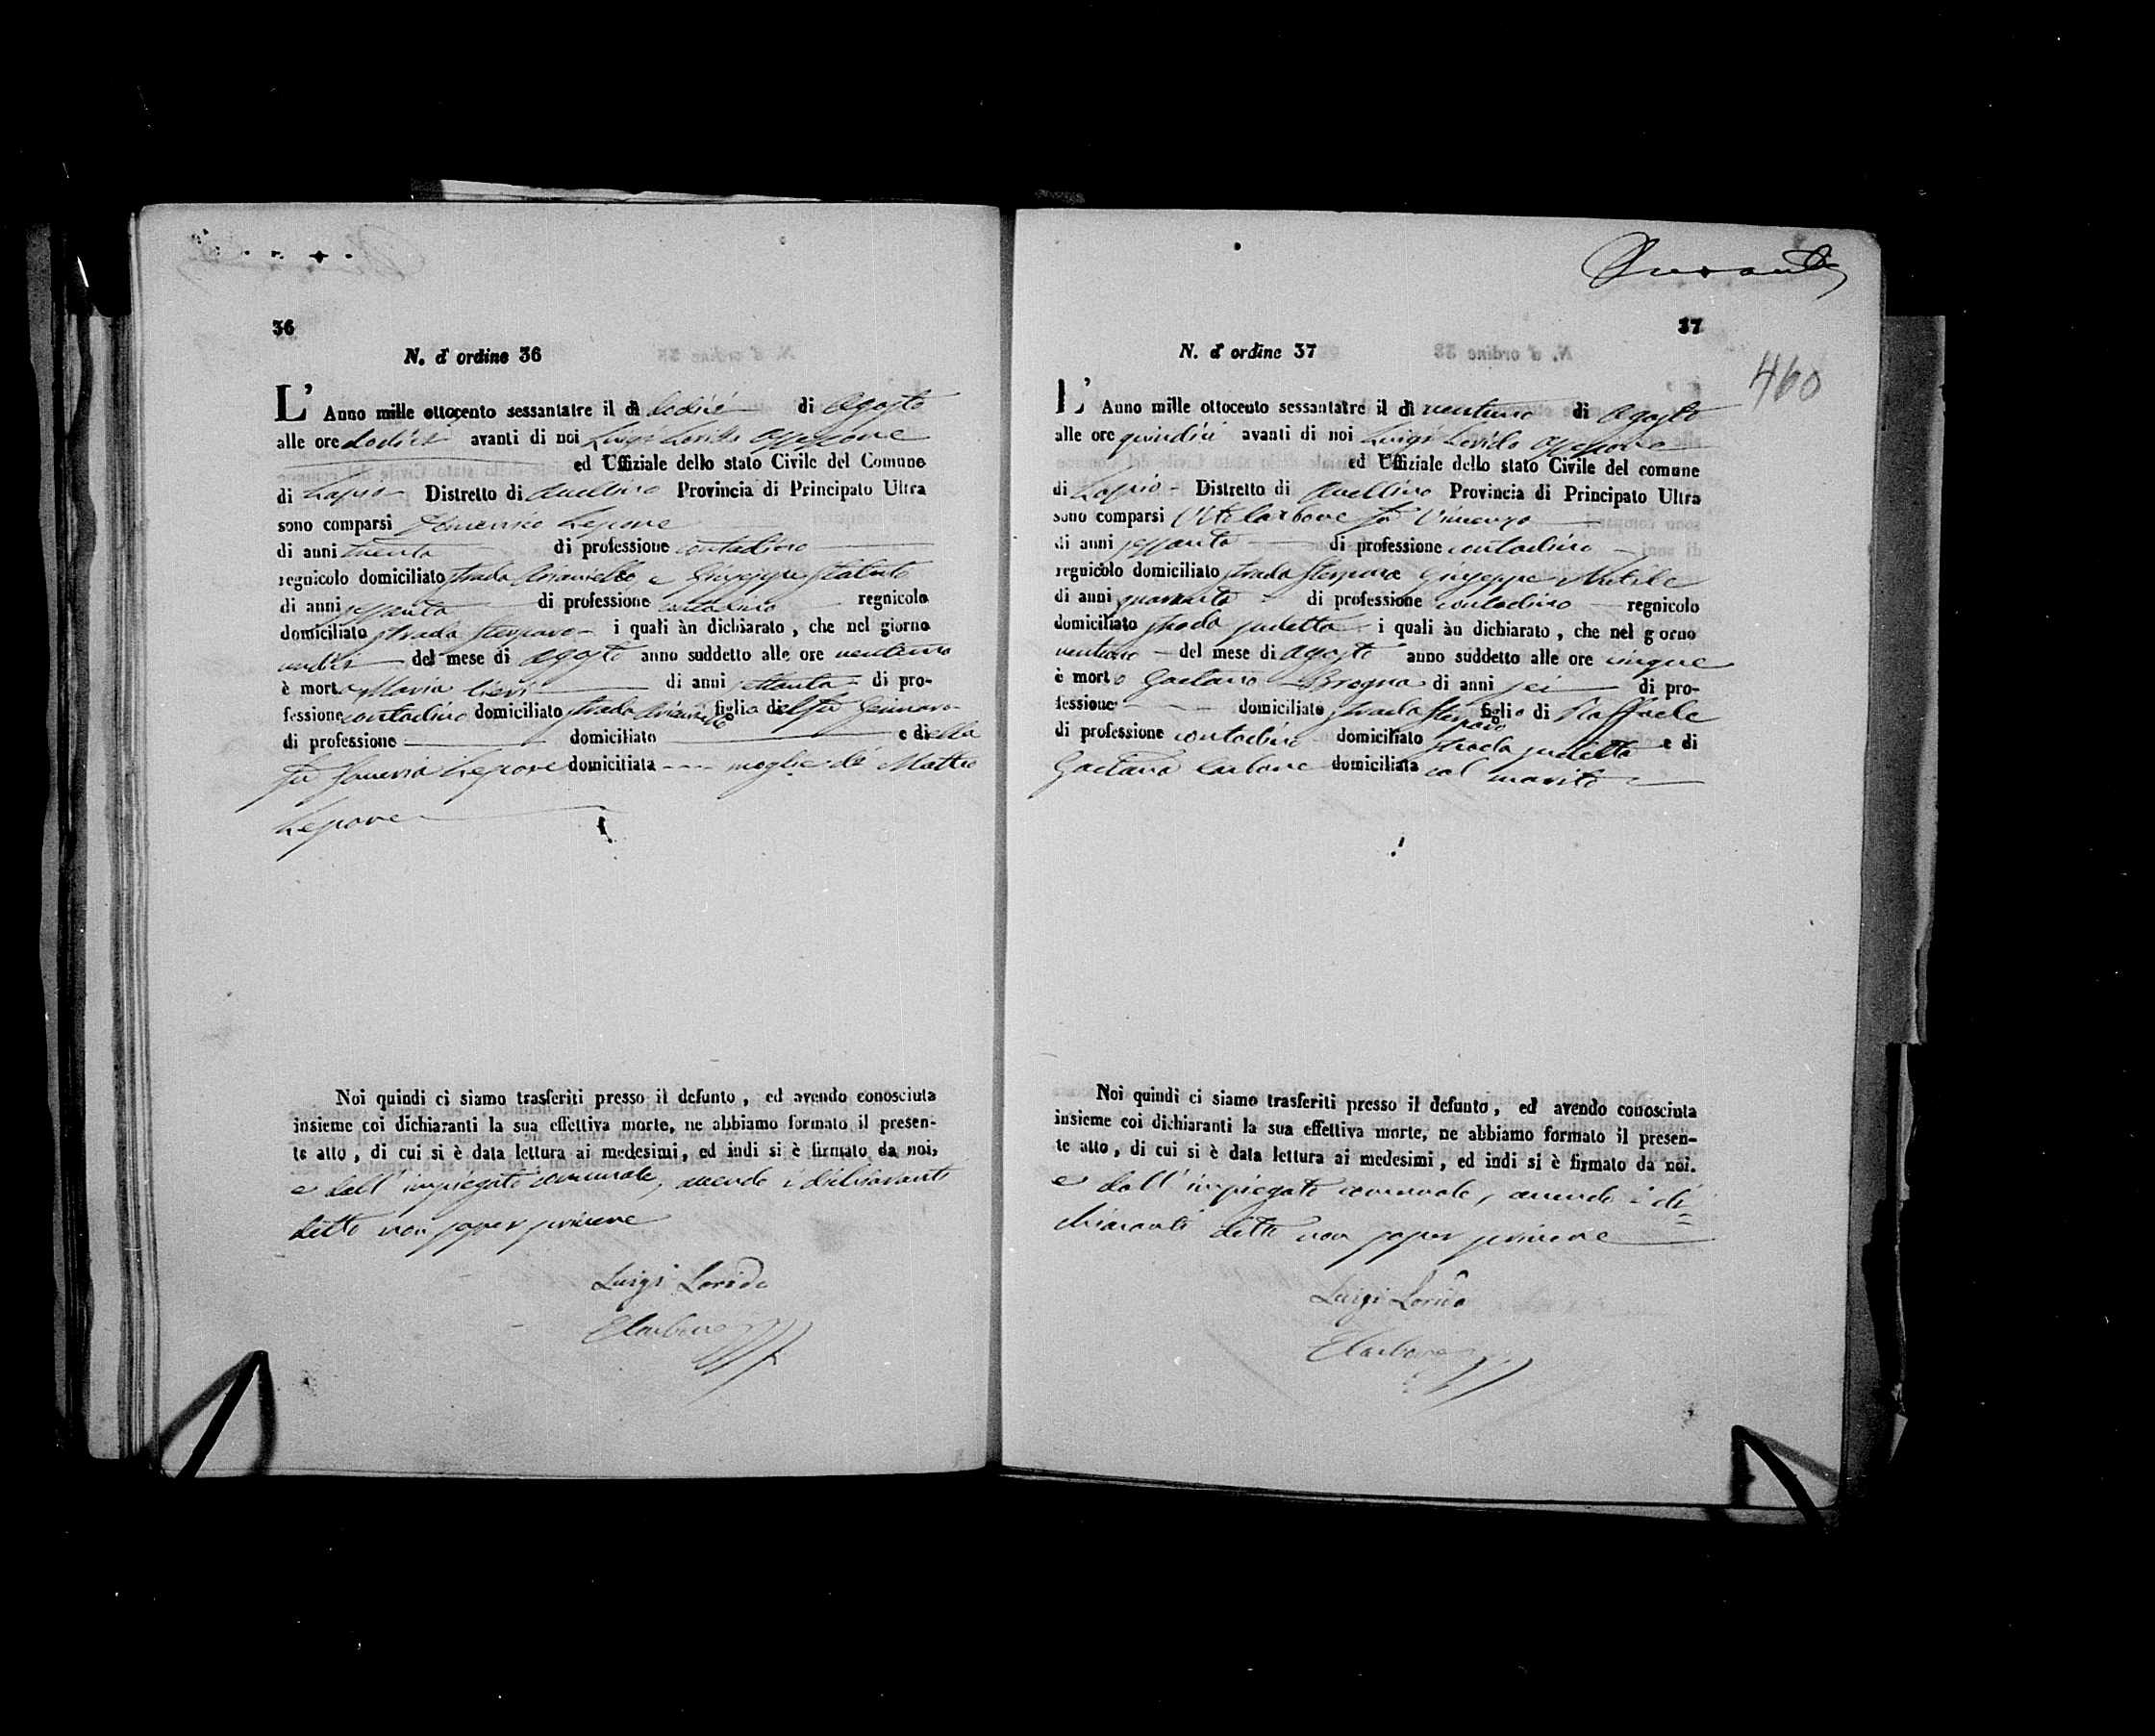 36
N. d' ordine 36
L' Anno mille ottocento sessantatre il dì dodici di Agosto
alle ore dodici avanti di noi Luigi Lorido Assessore
ed Uffiziale dello stato Civile del Comune
di Lapio Distretto di Avellino Provincia di Principato Ultra
sono comparsi Domenico Lepore
di anni trenta di professione contadino
regnicolo domiciliato strada e Giuseppe
di anni sessanta di professione contadino regnicolo
domiciliato strada i quali àn dichiarato, che nel giorno
undici del mese di Agosto anno suddetto alle ore ventuno
è mort Maria di anni settanta di pro-
fessione contadina domiciliato strada figlia del fu Gennaro
di professione domiciliato e di ella
fu Saveria Lepore domicitiata moglie di Matteo
Lepore
Noi quindi ci siamo trasferiti presso il defunto, ed avendo conosciuta
insieme coi dichiaranti la sua effettiva morte, ne abbiamo formato il presen-
te atto, di cui si è data lettura ai medesimi, ed indi si è firmato da noi,
e dall' impiegato comunale, avendo i dichiaranti
detto non saper scrivere
Luigi Lorido
Carbone
37
N. d' ordine 37
460
L' Anno mille ottocento sessantatre il dì ventuno di Agosto
alle ore quindici avanti di noi Luigi Lorido Assessore
ed Uffiziale dello stato Civile del comune
di Lapio Distretto di Avellino Provincia di Principato Ultra
sono comparsi Vito Carbone fu Vincenzo
di anni sessanta di professione contadino
regnicolo domiciliato strada Giuseppe
di anni quaranta di professione contadino regnicolo
domiciliato strada i quali àn dichiarato, che nel gorno
ventuno del mese di Agosto anno suddetto alle ore cinque
è morto Gaetano Brogna di anni sei di pro-
fessione domiciliato strada figlio di Raffaele
di professione contadino domiciliato strada e di
Gaetana Carbone domiciliata col marito
Noi quindi ci siamo trasferiti presso il defunto, ed avendo conosciuta
insieme coi dichiaranti la sua effettiva morte, ne abbiamo formato il presen-
te atto, di cui si è data lettura ai medesimi, ed indi si è firmato da noi.
e dall' impiegato comunale, avendo i di=
chiaranti detto non saper scrivere
Luigi Lorido
Carbone